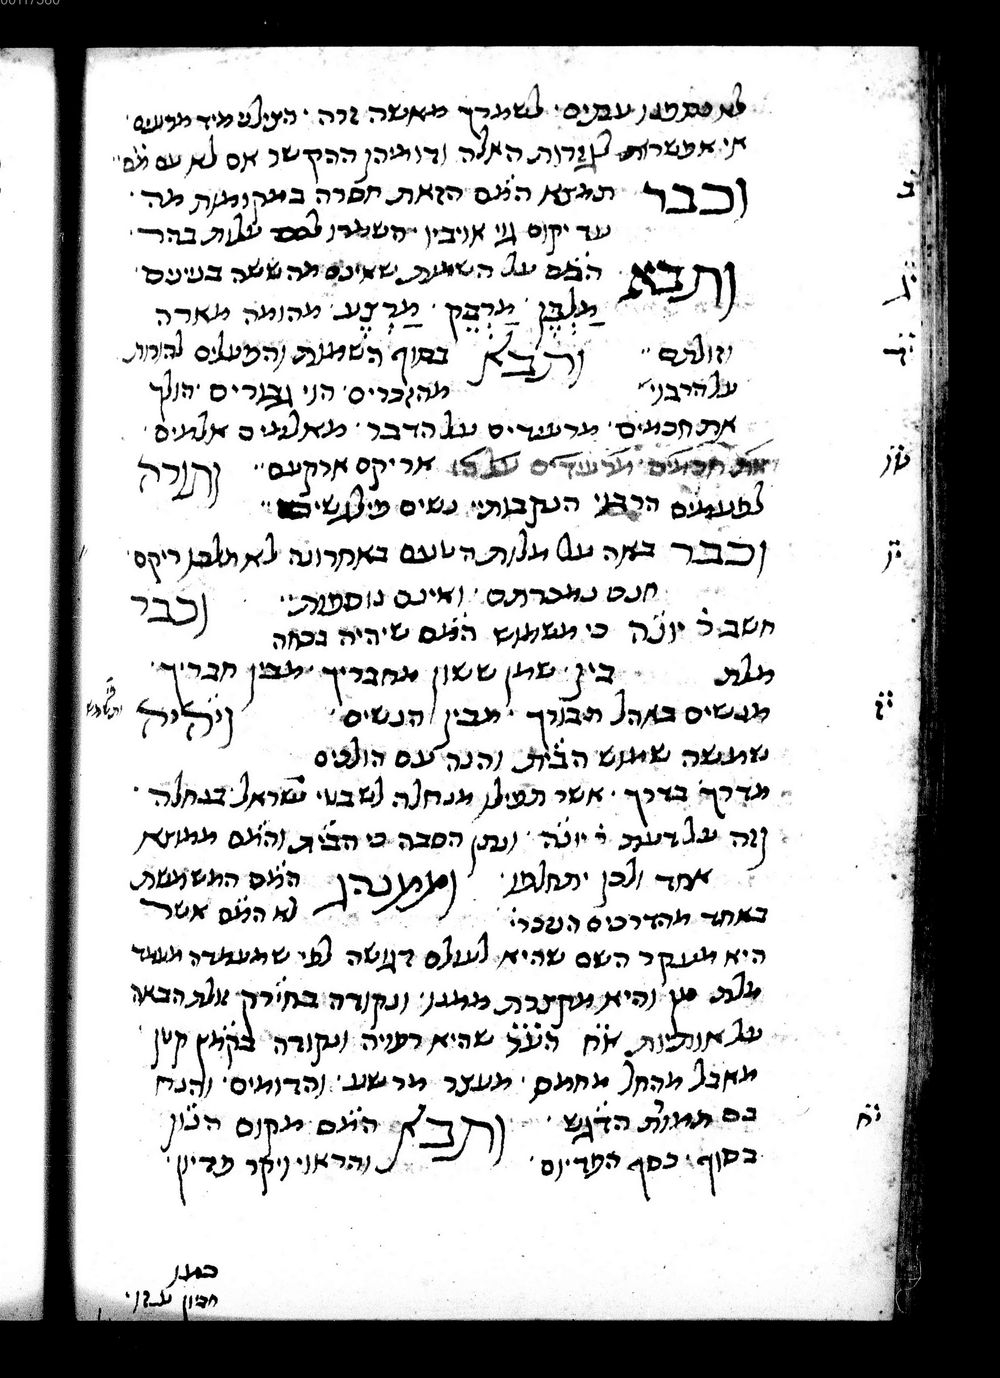 לא עמנו עתים · לשמרך מאשה זרה · הצילני מיד מרעים ·
אי אפשרות לגזרות האלה ודומיהן ההקשר אם לא עם מ̇ם̇ ״
וכבר תמצא המ̇ם̇ הזאת חסרה במקומות מה ·
עד יקום גוי אויביו · השמרו לכם עלות בהר ·
ותבא המ̇ם̇ על השמות שאינם מהששה בנינים
מַלְבֵּן · מַרְבֵּק · מַרְצֵעַ · מהומה מארה
וזולתם ״ ותבא בסוף השמות והפעלים להורות
על הרבוי ״ מהזכרים · הני גבורים · הולך
את חכמים · מרעידים על הדבר · מאלמים אלמים ·
את חכמים מרעידים על הד אך יקם ארקעם ״ ותורה
לפעמים הרבוי הנקבות ״ נשים פילגשים ״
וכבר באה על מלות הטעם באחרונה לא תלכו ריקם
חנם נמכרתם · ואינם נוספות ״ וכבר
חשב ר̇ יונ̇ה̇ כי משמוש המ̇ם̇ שיהיה בכחה
מלת בין · שמן ששון מחבריך · מבין חבריך ·
מנשים באהל תבורך · מבין הנשים · ויהיה
שמושה שמוש הב̇י̇ת̇ והנה עם הולכים
מדרך בדרך · אשר תפילו מנחלה לשבטי ישראל · בנחלה ·
וזה על דעת ר̇ יונ̇ה̇ · ונתן הסבה כי הב̇י̇ת̇ והמ̇ם̇ ממוצא
אחד ולכן יתחלפו · וממנהג המ̇ם̇ המשמשת
באחד מהדרכים הנזכרי̇ לא המ̇ם̇ אשר
היא מעקר השם שהיא לעולם דגושה לפי שמעמדה מעמד
מלת מן והיא מקצרת ממנו · ונקודה בחירק זולת הבאה
על אותיות א̇ח̇ ה̇ע̇ר̇ שהיא רפויה ונקודה בקמץ קטן
מאבל מהחל מחמס · מעצר מרשע · והדומים · והנח
בם תמורת הדגש · ותבא המ̇ם̇ מקום הנ̇ו̇ן̇
בסוף · כסף הפדיום · והראוי ויקר פדיון ·
כמנו
חטין ע̇ד̇ן̇ ·
י̇ב̇
י̇ג̇
י̇ד̇
ט̇ו̇
י̇ו̇
י̇ז̇
י̇ח̇